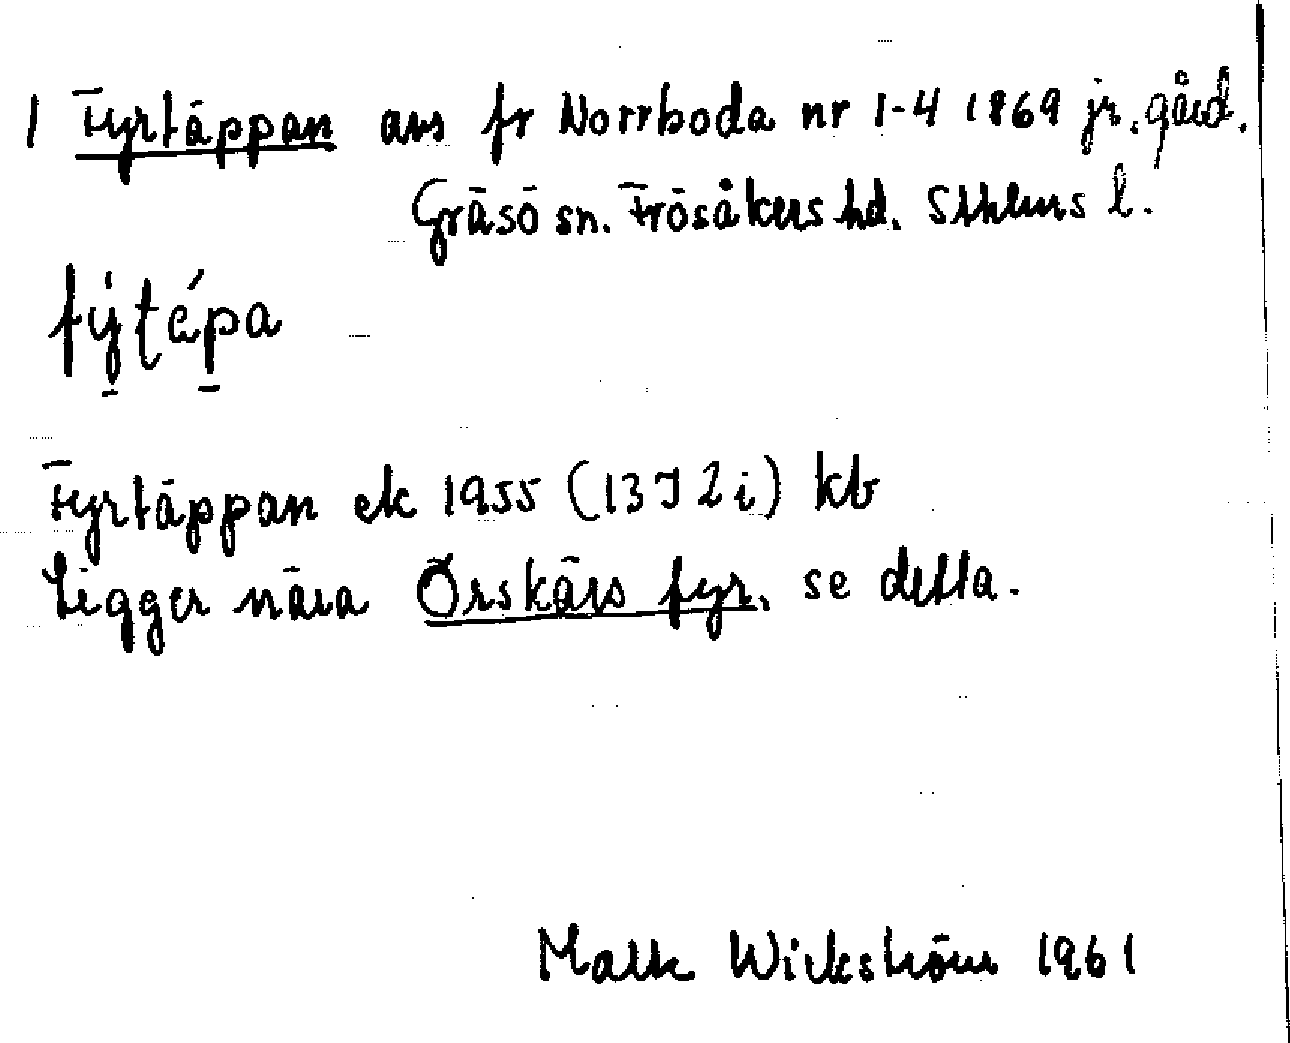 1 Fyrtäppan avs fr Norrboda nr 1-4 1869 jr. gård.
Gräsö sn. Frösåkers hd. Sthlms l.
fýtépa
Fyrtäppan ek 1955 (13J 2i) kb
Ligger nära Örskärs fyr. se detta.
Wickström 1961